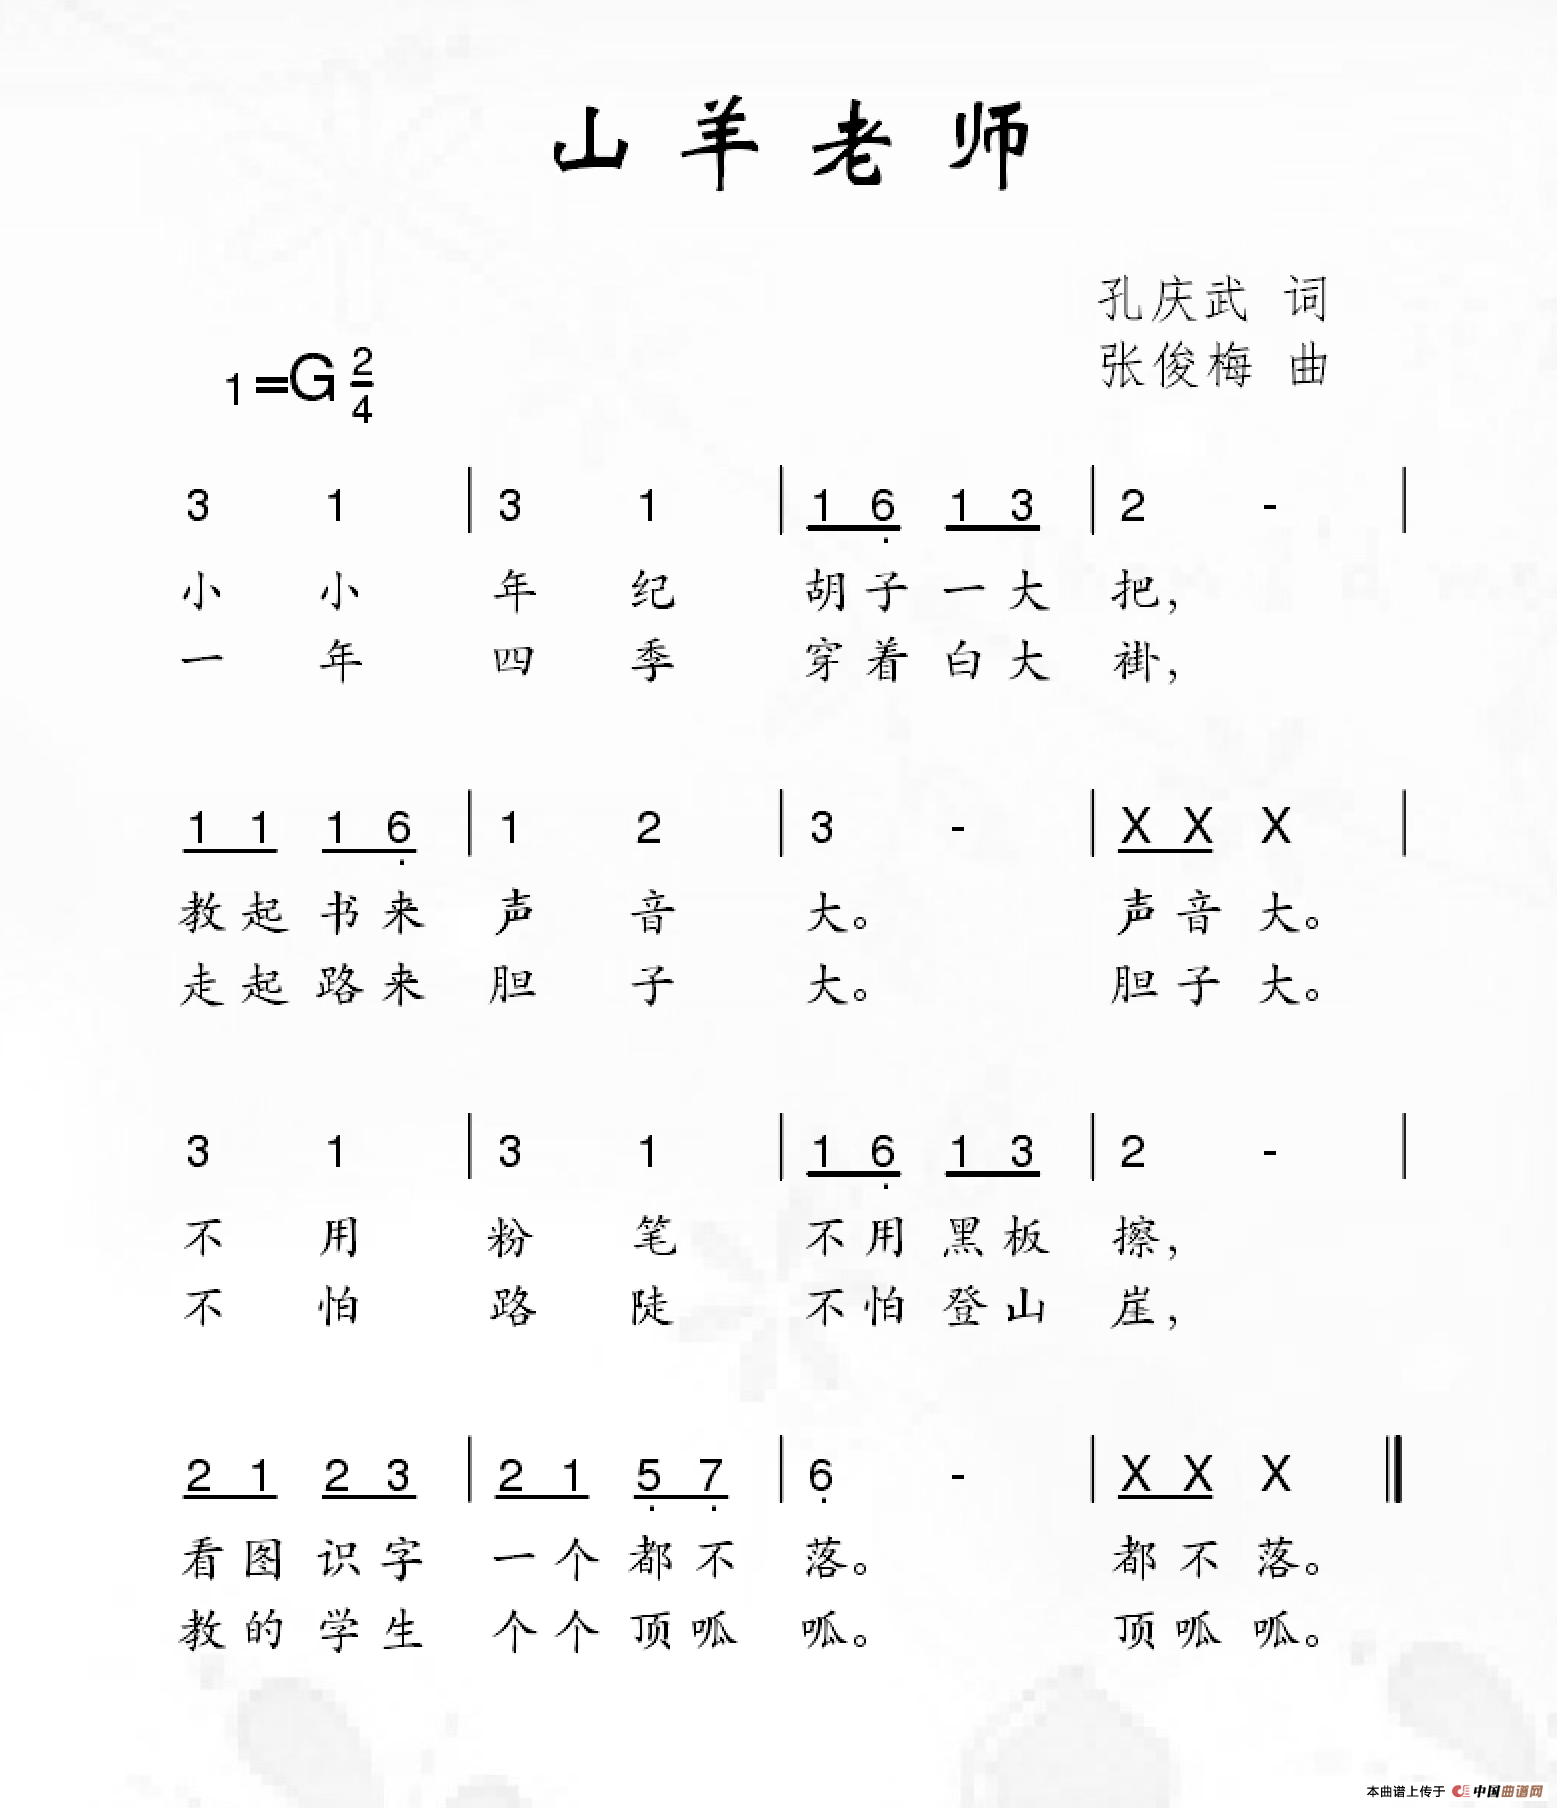 山羊老师
孔庆武 词
张俊梅 曲
1=G 2/4
3 1 | 3 1 | 1 6̣ 1 3 | 2 - |
小 小 年 纪 胡 子 一 大 把，
一 年 四 季 穿 着 白 大 褂，
1 1 1 6̣ | 1 2 | 3 - | X X X |
教 起 书 来 声 音 大。 声 音 大。
走 起 路 来 胆 子 大。 胆 子 大。
3 1 | 3 1 | 1 6̣ 1 3 | 2 - |
不 用 粉 笔 不 用 黑 板 擦，
不 怕 路 陡 不 怕 登 山 崖，
2 1 2 3 | 2 1 5̣ 7̣ | 6̣ - | X X X ‖
看 图 识 字 一 个 都 不 落。 都 不 落。
教 的 学 生 个 个 顶 呱 呱。 顶 呱 呱。
本曲谱上传于 中国曲谱网